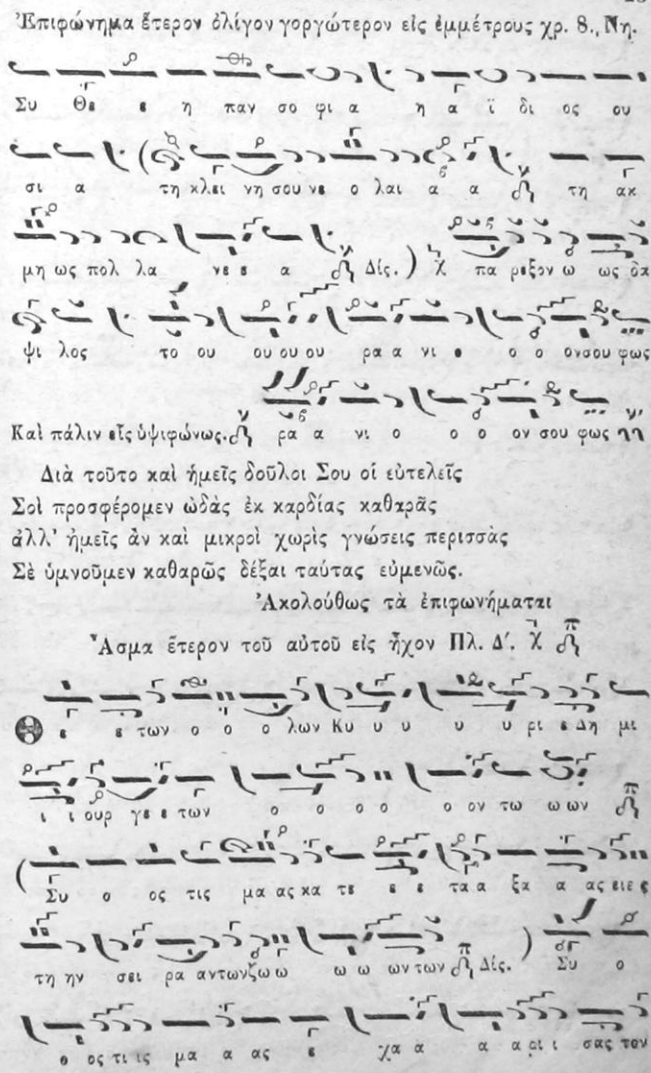 Ἐπιφώνημα ἕτερον ὀλίγον γοργώτερον εἰς ἐμμέτρους χρ. 8., Νη.
Συ Θε ε η παν σο φι α η α ϊ δι ος ου
σι α τη κλει νη σου νε ο λαι α α τη ακ
μη ως πολ λα νε ε α Δίς.) πα ρεξον ω ως δα
ψι λος το ου ου ου ου ρα α νι ο ο ο ονσου φως
Καὶ πάλιν εἰς ὑψιφώνως. ρα α νι ο ο ο ον σου φως
Διὰ τοῦτο καὶ ἡμεῖς δοῦλοι Σου οἱ εὐτελεῖς
Σοὶ προσφέρομεν ὠδὰς ἐκ καρδίας καθαρᾶς
ἀλλ' ἡμεῖς ἂν καὶ μικροὶ χωρὶς γνώσεις περισσὰς
Σὲ ὑμνοῦμεν καθαρῶς δέξαι ταύτας εὐμενῶς.
Ἀκολούθως τὰ ἐπιφωνήμαται
Ἆσμα ἕτερον τοῦ αὐτοῦ εἰς ἦχον Πλ. Δ'.
Θ ε ε των ο ο ο λων Κυ υ υ υ υ ρι ε Δη μι
ι ι ουρ γε ε των ο ο ο ο ο ον τω ω ων
(Συ ο ος τις μα ας κα τε ε ε τα α ξα α ας ειε ς
τη ην σει ρα αντωνζω ω ω ω ων των Δίς.) Συ ο
ο ος τι ις μα α ας ε χα α α α ρι ι σας τον